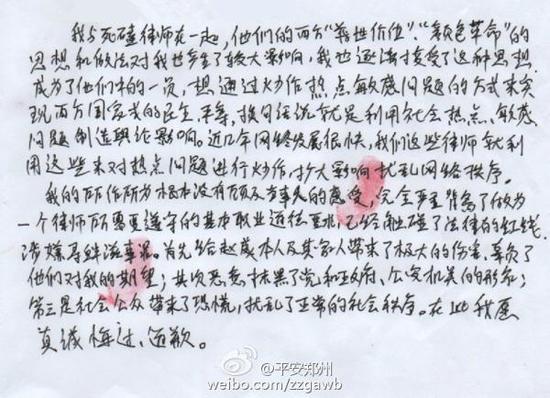 我与死磕律师在一起，他们的西方“普世价值”、“颜色革命”的
思想和做法对我也产生了较大影响，我也逐渐接受了这种思想，
成为了他们中的一员，想通过炒作热点敏感问题的方式来实
现西方国家式的民主、平等，换句话说就是利用社会热点、敏感
问题制造舆论影响。近几年网络发展很快，我们这些律师就利
用这些来对热点问题进行炒作，扩大影响扰乱网络秩序。
我的所作所为根本没有顾及当事人的感受，完全严重背离了做为
一个律师所需要遵守的基本职业道德要求，已经触碰了法律的红线，
涉嫌寻衅滋事罪。首先给赵威本人及其家人带来了极大的伤害，辜负了
他们对我的期望；其次恶意抹黑了党和政府、公安机关的形象；
第三是社会公众带来了恐慌，扰乱了正常的社会秩序。在此我愿
真诚悔过、道歉。
@平安郑州
weibo.com/zzgawb